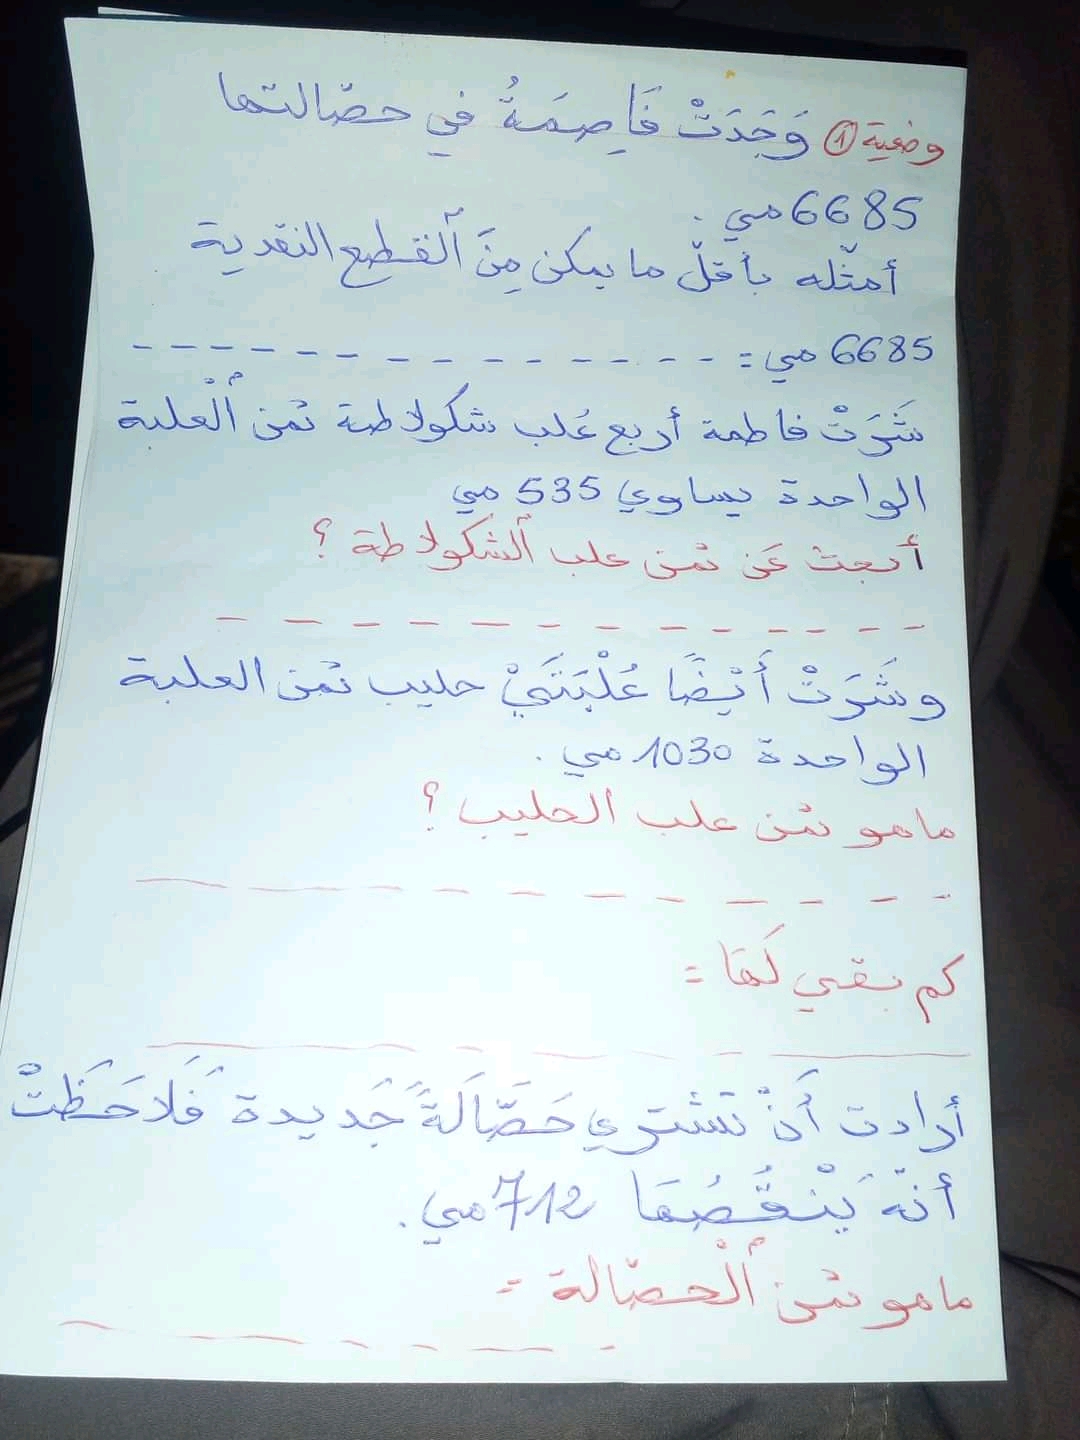 وضعية ① وَجَدَتْ فَاطِمَةُ في حصّالتها
6685 مي .
أمثّله بأقلّ ما يمكن مِنَ ٱلقطع النقدية
6685 مي = - - - - - - - - - - - -
شَرَتْ فاطمة أربع عُلب شكولاطة ثمن ٱلْعلبة
الواحدة يساوي 535 مي
أبحث عَن ثمن علب ٱلشكولاطة ؟
- - - - - - - - - - - -
وشَرَتْ أَيْضًا عُلْبَتَيْ حليب ثمن العلبة
الواحدة 1030 مي .
ما هو ثمن علب الحليب ؟
- - - - - - - - - - - -
كم بقي لَهَا =
- - - - - - - -
أرادت أَنْ تشتري حَصَّالَةً جَديدة فَلاحَظَتْ
أنّه يَنْقُصُهَا 712 مي .
ما هو ثمن ٱلْحصّالة =
- - - - - - - -